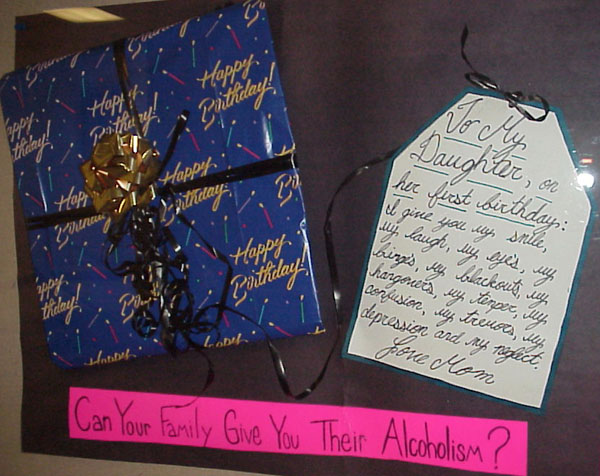 Happy Birthday!
Happy
Birthday!
Happy
Birthday!
Happy
Birthday!
Happy
Birthday!
Happy
Birthday!
To My
Daughter, on
her first birthday:
I give you my smile,
my laugh, my eyes, my
binges, my blackouts, my
hangovers, my temper, my
confusion, my tremors, my
depression and my neglect.
Love Mom
Can Your Family Give You Their Alcoholism?